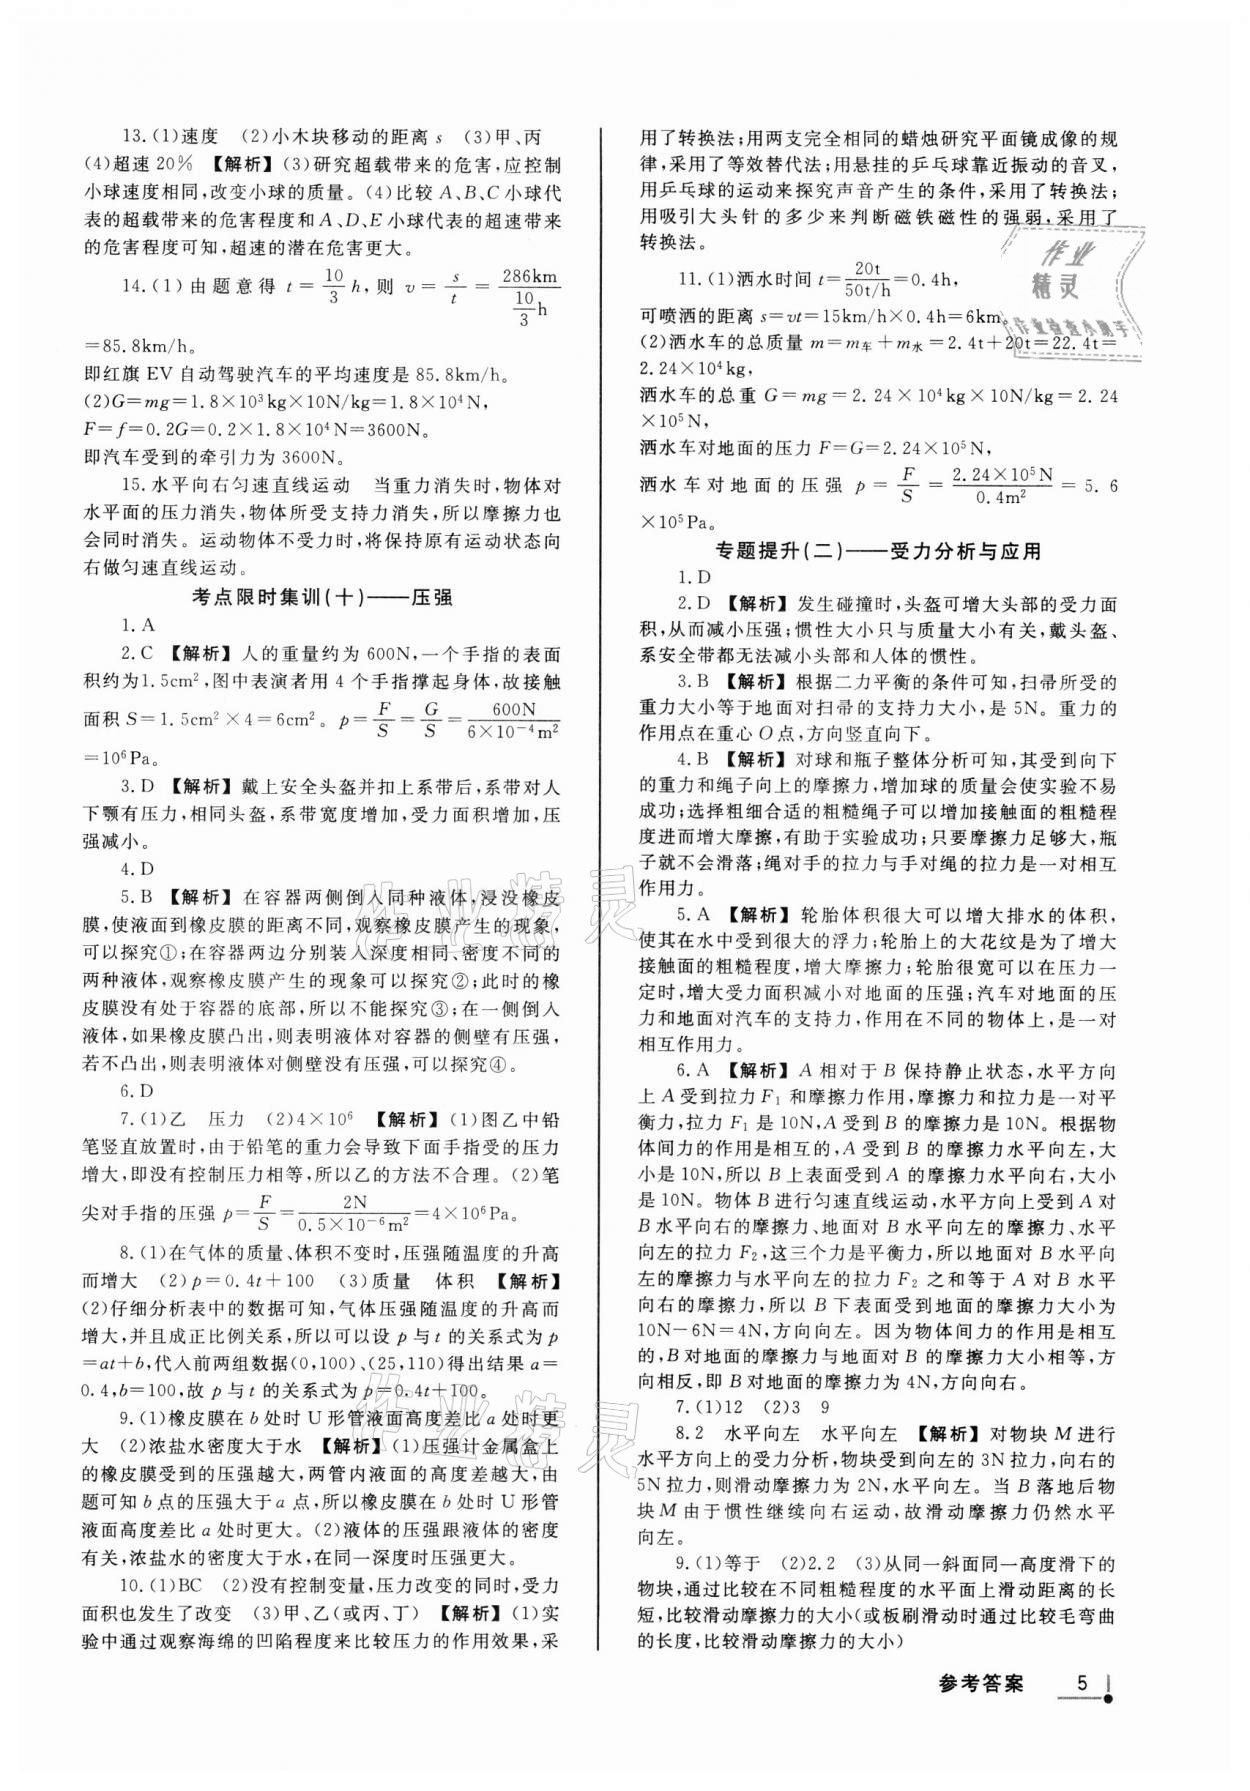 13.(1)速度 (2)小木块移动的距离 s (3)甲、丙
(4)超速20% 【解析】(3)研究超载带来的危害,应控制
小球速度相同,改变小球的质量。(4)比较 A、B、C 小球代
表的超载带来的危害程度和 A、D、E 小球代表的超速带来
的危害程度可知,超速的潜在危害更大。
14.(1)由题意得 t=10/3 h,则 v=s/t=286km/(10/3 h)
=85.8km/h。
即红旗 EV 自动驾驶汽车的平均速度是 85.8km/h。
(2)G=mg=1.8×10³kg×10N/kg=1.8×10⁴N,
F=f=0.2G=0.2×1.8×10⁴N=3600N。
即汽车受到的牵引力为 3600N。
15.水平向右匀速直线运动 当重力消失时,物体对
水平面的压力消失,物体所受支持力消失,所以摩擦力也
会同时消失。运动物体不受力时,将保持原有运动状态向
右做匀速直线运动。
考点限时集训(十)——压强
1.A
2.C 【解析】人的重量约为 600N,一个手指的表面
积约为1.5cm²,图中表演者用 4 个手指撑起身体,故接触
面积 S=1.5cm²×4=6cm²。p=F/S=G/S=600N/(6×10⁻⁴m²)
=10⁶Pa。
3.D 【解析】戴上安全头盔并扣上系带后,系带对人
下颚有压力,相同头盔,系带宽度增加,受力面积增加,压
强减小。
4.D
5.B 【解析】在容器两侧倒入同种液体,浸没橡皮
膜,使液面到橡皮膜的距离不同,观察橡皮膜产生的现象,
可以探究①;在容器两边分别装入深度相同、密度不同的
两种液体,观察橡皮膜产生的现象可以探究②;此时的橡
皮膜没有处于容器的底部,所以不能探究③;在一侧倒入
液体,如果橡皮膜凸出,则表明液体对容器的侧壁有压强,
若不凸出,则表明液体对侧壁没有压强,可以探究④。
6.D
7.(1)乙 压力 (2)4×10⁶ 【解析】(1)图乙中铅
笔竖直放置时,由于铅笔的重力会导致下面手指受的压力
增大,即没有控制压力相等,所以乙的方法不合理。(2)笔
尖对手指的压强 p=F/S=2N/(0.5×10⁻⁶m²)=4×10⁶Pa。
8.(1)在气体的质量、体积不变时,压强随温度的升高
而增大 (2)p=0.4t+100 (3)质量 体积 【解析】
(2)仔细分析表中的数据可知,气体压强随温度的升高而
增大,并且成正比例关系,所以可以设 p 与 t 的关系式为 p
=at+b,代入前两组数据(0,100)、(25,110)得出结果 a=
0.4,b=100,故 p 与 t 的关系式为 p=0.4t+100。
9.(1)橡皮膜在 b 处时 U 形管液面高度差比 a 处时更
大 (2)浓盐水密度大于水 【解析】(1)压强计金属盒上
的橡皮膜受到的压强越大,两管内液面的高度差越大,由
题可知 b 点的压强大于 a 点,所以橡皮膜在 b 处时 U 形管
液面高度差比 a 处时更大。(2)液体的压强跟液体的密度
有关,浓盐水的密度大于水,在同一深度时压强更大。
10.(1)BC (2)没有控制变量,压力改变的同时,受力
面积也发生了改变 (3)甲、乙(或丙、丁) 【解析】(1)实
验中通过观察海绵的凹陷程度来比较压力的作用效果,采
用了转换法;用两支完全相同的蜡烛研究平面镜成像的规
律,采用了等效替代法;用悬挂的乒乓球靠近振动的音叉,
用乒乓球的运动来探究声音产生的条件,采用了转换法;
用吸引大头针的多少来判断磁铁磁性的强弱,采用了
转换法。
11.(1)洒水时间 t=20t/(50t/h)=0.4h,
可喷洒的距离 s=vt=15km/h×0.4h=6km。
(2)洒水车的总质量 m=m车+m水=2.4t+20t=22.4t=
2.24×10⁴kg,
洒水车的总重 G=mg=2.24×10⁴kg×10N/kg=2.24
×10⁵N,
洒水车对地面的压力 F=G=2.24×10⁵N,
洒水车对地面的压强 p=F/S=2.24×10⁵N/0.4m²=5.6
×10⁵Pa。
专题提升(二)——受力分析与应用
1.D
2.D 【解析】发生碰撞时,头盔可增大头部的受力面
积,从而减小压强;惯性大小只与质量大小有关,戴头盔、
系安全带都无法减小头部和人体的惯性。
3.B 【解析】根据二力平衡的条件可知,扫帚所受的
重力大小等于地面对扫帚的支持力大小,是 5N。重力的
作用点在重心 O 点,方向竖直向下。
4.B 【解析】对球和瓶子整体分析可知,其受到向下
的重力和绳子向上的摩擦力,增加球的质量会使实验不易
成功;选择粗细合适的粗糙绳子可以增加接触面的粗糙程
度进而增大摩擦,有助于实验成功;只要摩擦力足够大,瓶
子就不会滑落;绳对手的拉力与手对绳的拉力是一对相互
作用力。
5.A 【解析】轮胎体积很大可以增大排水的体积,
使其在水中受到很大的浮力;轮胎上的大花纹是为了增大
接触面的粗糙程度,增大摩擦力;轮胎很宽可以在压力一
定时,增大受力面积减小对地面的压强;汽车对地面的压
力和地面对汽车的支持力,作用在不同的物体上,是一对
相互作用力。
6.A 【解析】A 相对于 B 保持静止状态,水平方向
上 A 受到拉力 F₁ 和摩擦力作用,摩擦力和拉力是一对平
衡力,拉力 F₁ 是 10N,A 受到 B 的摩擦力是 10N。根据物
体间力的作用是相互的,A 受到 B 的摩擦力水平向左,大
小是 10N,所以 B 上表面受到 A 的摩擦力水平向右,大小
是 10N。物体 B 进行匀速直线运动,水平方向上受到 A 对
B 水平向右的摩擦力、地面对 B 水平向左的摩擦力、水平
向左的拉力 F₂,这三个力是平衡力,所以地面对 B 水平向
左的摩擦力与水平向左的拉力 F₂ 之和等于 A 对 B 水平
向右的摩擦力,所以 B 下表面受到地面的摩擦力大小为
10N-6N=4N,方向向左。因为物体间力的作用是相互
的,B 对地面的摩擦力与地面对 B 的摩擦力大小相等,方
向相反,即 B 对地面的摩擦力为 4N,方向向右。
7.(1)12 (2)3 9
8.2 水平向左 水平向左 【解析】对物块 M 进行
水平方向上的受力分析,物块受到向左的 3N 拉力,向右的
5N 拉力,则滑动摩擦力为 2N,水平向左。当 B 落地后物
块 M 由于惯性继续向右运动,故滑动摩擦力仍然水平
向左。
9.(1)等于 (2)2.2 (3)从同一斜面同一高度滑下的
物块,通过比较在不同粗糙程度的水平面上滑动距离的长
短,比较滑动摩擦力的大小(或板刷滑动时通过比较毛弯曲
的长度,比较滑动摩擦力的大小)
参考答案 5
作业
精灵
作业检查小助手
作业精灵
作业精灵